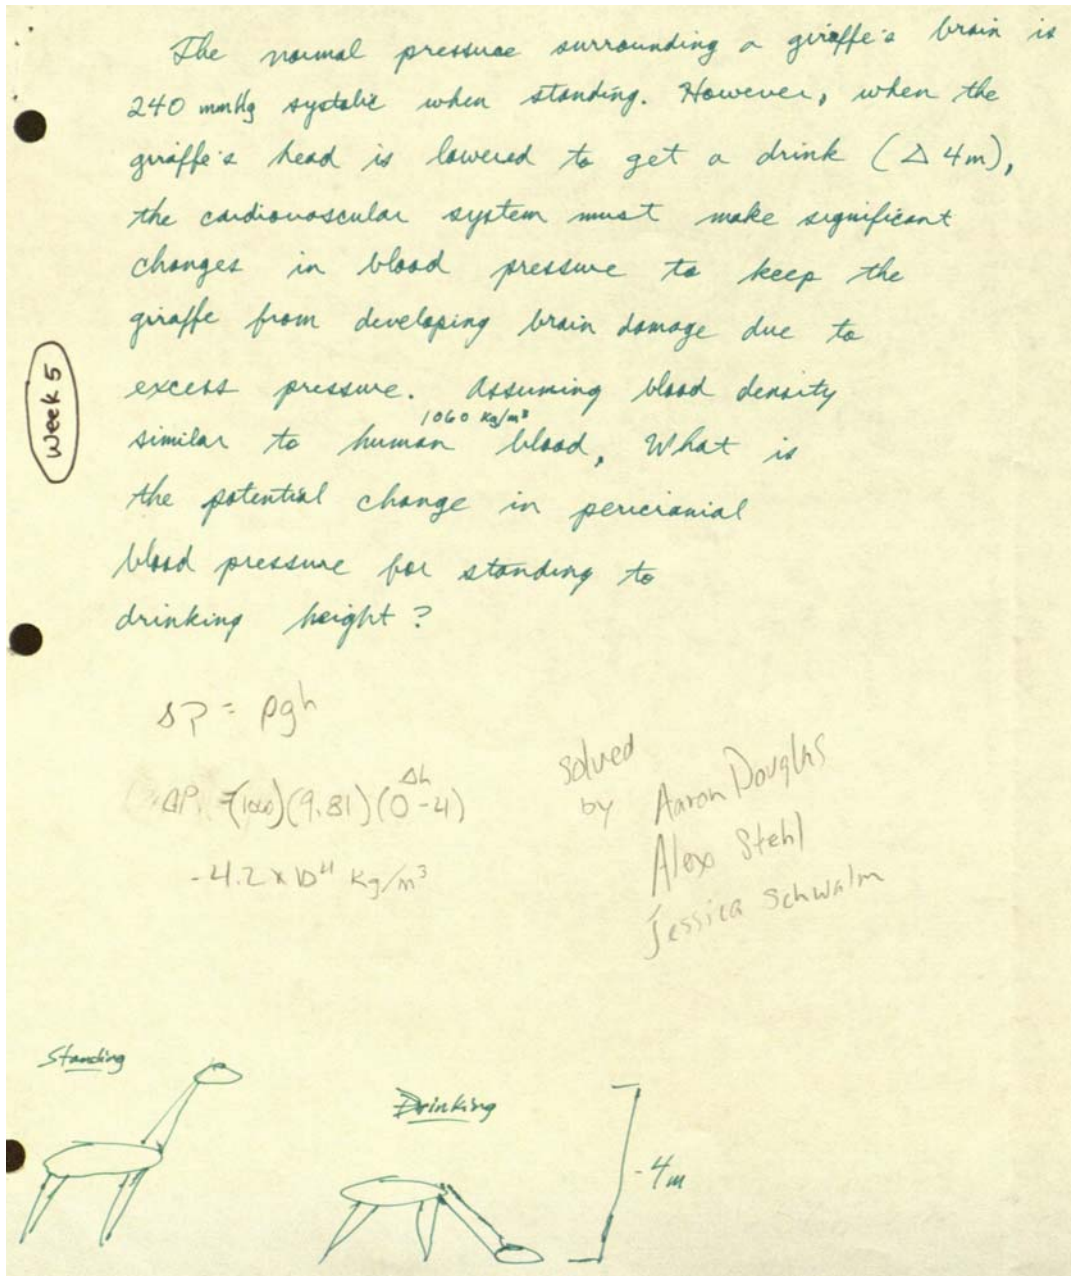 The normal pressure surrounding a giraffe's brain is
240 mmHg systolic when standing. However, when the
giraffe's head is lowered to get a drink (Δ 4m),
the cardiovascular system must make significant
changes in blood pressure to keep the
giraffe from developing brain damage due to
excess pressure. Assuming blood density
1060 kg/m³
similar to human blood, What is
the potential change in pericranial
blood pressure for standing to
drinking height?
Week 5
ΔP = ρgh
Δh
ΔP = (1060)(9.81)(0-4)
-4.2 x 10⁴ kg/m³
solved
by Aaron Douglas
Alex Stehl
Jessica Schwalm
Standing
Drinking
-4m